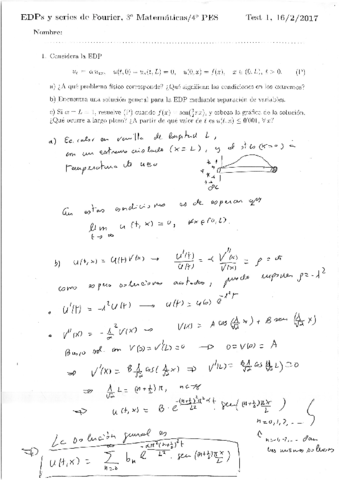 EDPs y series de Fourier, 3º Matemáticas/4º PES Test 1, 16/2/2017
Nombre:
1. Considera la EDP
u_t = α u_xx, u(t,0) = u_x(t,L) = 0, u(0,x) = f(x), x ∈ (0,L), t > 0. (1º)
a) ¿A qué problema físico corresponde? ¿Qué significan las condiciones en los extremos?
b) Encuentra una solución general para la EDP mediante separación de variables.
c) Si α = L = 1, resuelve (1º) cuando f(x) = sen( x) y esboza la gráfica de la solución.
¿Qué ocurre a largo plazo? ¿A partir de qué valor de t es u(t,x) ≤ 0'001, ∀x?
a) Ec. calor en varilla de longitud L,
con un extremo aislado (x = L), y el otro (x=0) a
temperatura de
En estas condiciones es de esperar que
lim u(t,x) = 0, ∀x∈(0,L).
t→∞
b) u(t,x) = U(t)V(x) → U'(t)/U(t) = α V''(x)/V(x) = ρ = cte
como soluciones acotadas, puede suponer ρ = -λ²
• U'(t) = -λ² U(t) → U(t) = U(0) e^{-λ² t}
• V''(x) = -λ²/α V(x) ⇒ V(x) = A cos(λ/√α x) + B sen(λ/√α x)
sol. con V(0) = V'(L) = 0 → 0 = V(0) = A
⇒ V'(x) = B λ/√α cos(λ/√α x) ⇒ V'(L) = B λ/√α cos(λ/√α L) = 0
⇒ λ/√α L = (n+½)π,
⇒ u(t,x) = B · e^{-(n+½)²π²αt/L²} · sen((n+½)πx/L)
n = 0, 1, 2, ...
La solución general es
u(t,x) = Σ_{n=0}^{∞} b_n e^{-απ²(n+½)²t/L²} · sen((n+½)πx/L)